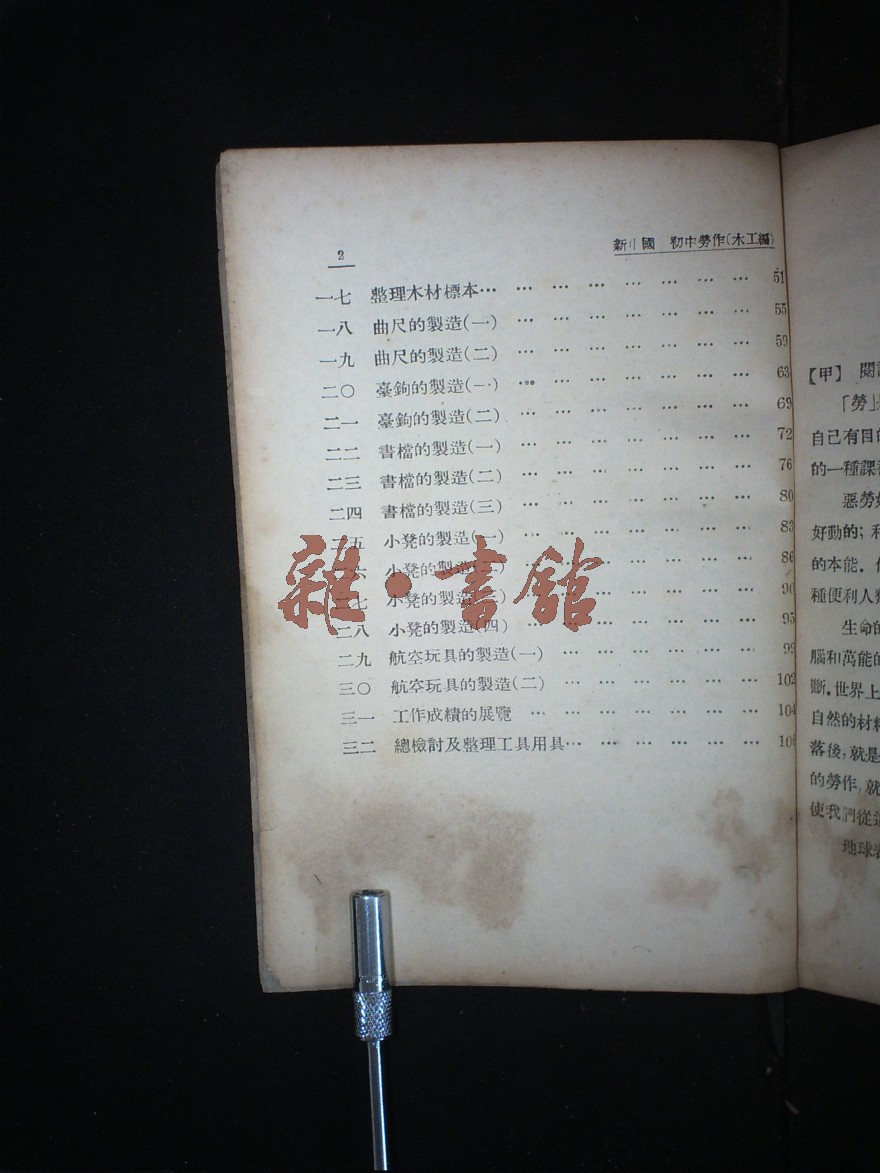 2
新中國 初中勞作(木工編)
一七 整理木材標本… … … … … … … … 51
一八 曲尺的製造(一) … … … … … … … 55
一九 曲尺的製造(二) … … … … … … … 59
二〇 臺鉤的製造(一) … … … … … … … 63
二一 臺鉤的製造(二) … … … … … … … 69
二二 書檔的製造(一) … … … … … … … 72
二三 書檔的製造(二) … … … … … … … 76
二四 書檔的製造(三) … … … … … … … 80
二五 小凳的製造(一) … … … … … … … 83
二六 小凳的製造(二) … … … … … … … 86
二七 小凳的製造(三) … … … … … … … 90
二八 小凳的製造(四) … … … … … … … 95
二九 航空玩具的製造(一) … … … … … … 99
三〇 航空玩具的製造(二) … … … … … … 102
三一 工作成績的展覽 … … … … … … … 104
三二 總檢討及整理工具用具… … … … … …
雜·書館
【甲】 閱
「勞」
自己有目的
的一種課
惡勞
好動的;
的本能.
種便利人類
生命的
腦和萬能的
斷.世界上
自然的材料
落後,就是
的勞作,就
使我們從這
地球表